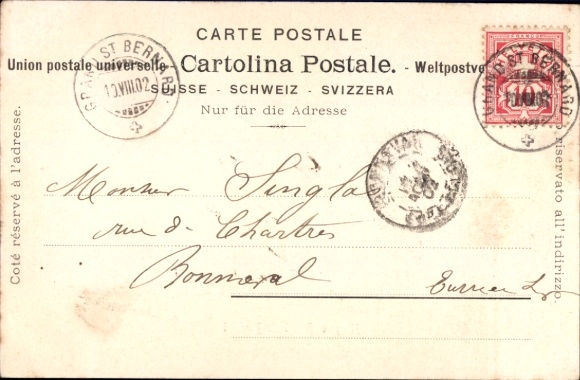 CARTE POSTALE
Union postale universelle. - Cartolina Postale. - Weltpostve
SUISSE - SCHWEIZ - SVIZZERA
Nur für die Adresse
GRAND ST BERNARD
10.VIII.02
GRAND ST BERNARD
10.VIII.02
10
Côté réservé à l'adresse.
riservato all'indirizzo.
Monsieur Singla
rue de Chartres
Bonneval
02